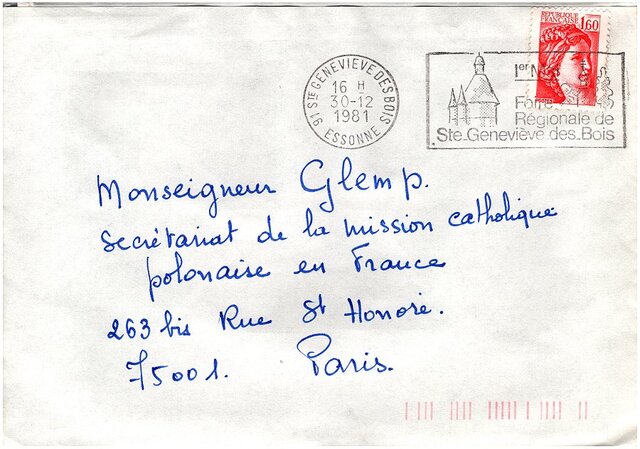 REPUBLIQUE FRANÇAISE
1,60
91 STE GENEVIEVE DES BOIS
16 H
30-12
1981
ESSONNE
1er
Régionale de
Ste. Geneviève des Bois
Monseigneur Glemp.
secrétariat de la mission catholique
polonaise en France
263 bis Rue St Honoré.
75001. Paris.